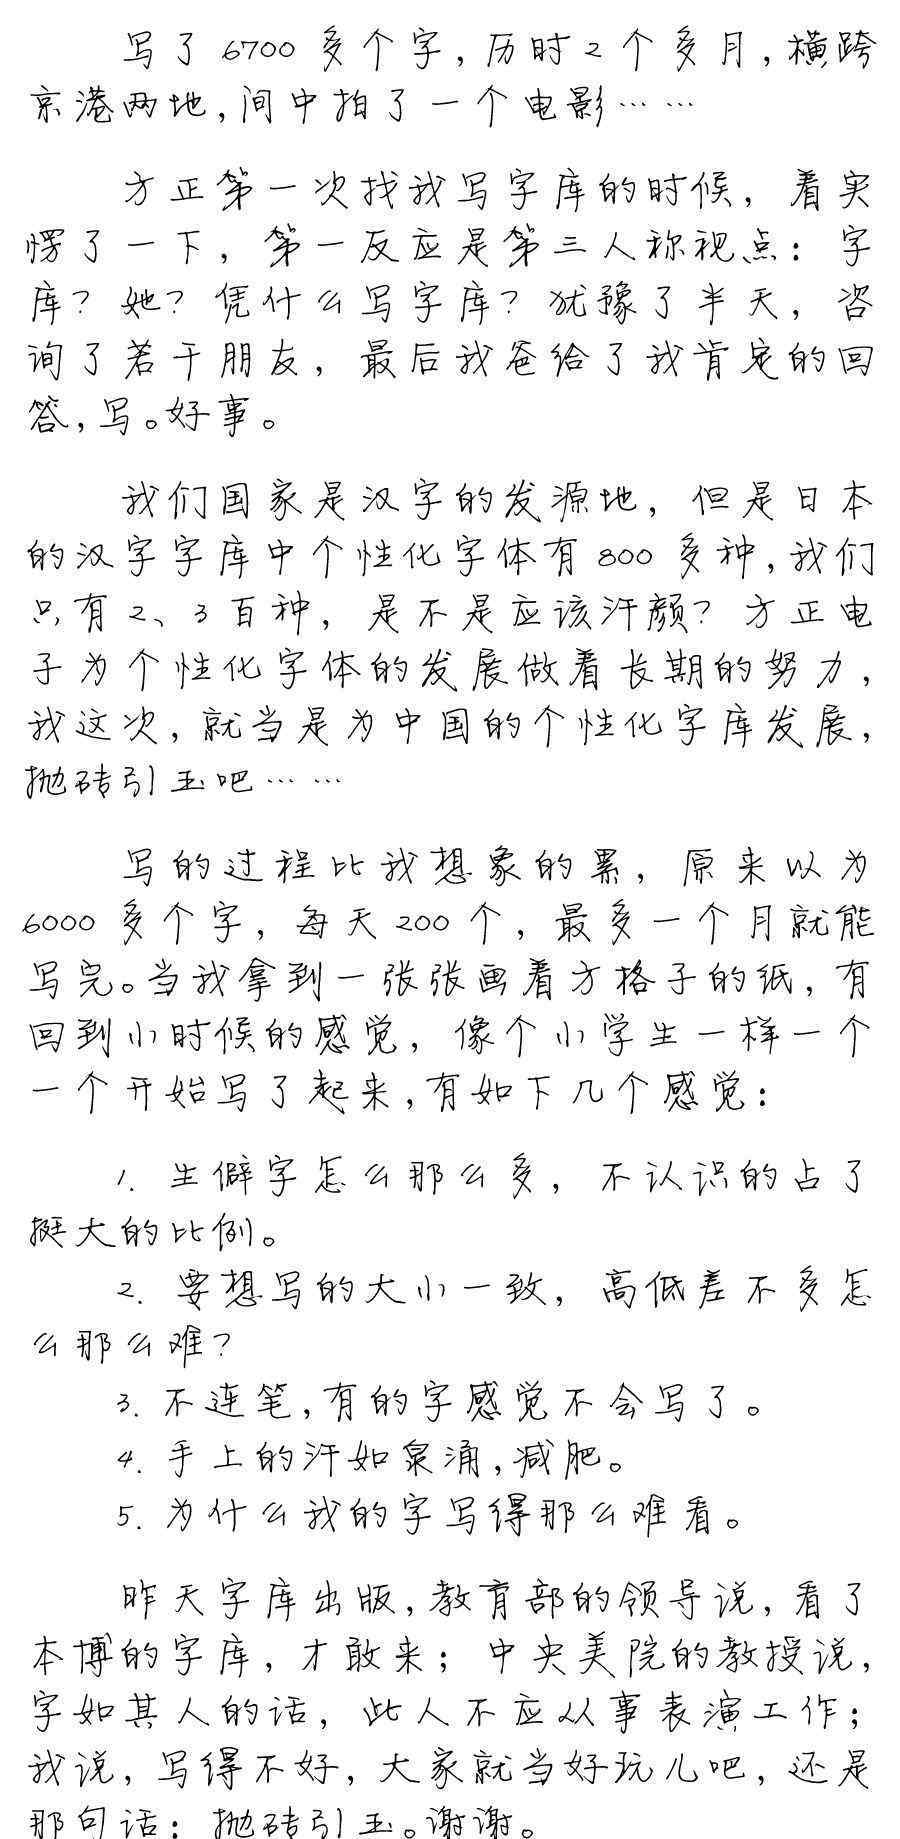 写了6700多个字,历时2个多月,横跨
京港两地,间中拍了一个电影……
方正第一次找我写字库的时候，着实
愣了一下，第一反应是第三人称视点：字
库？她？凭什么写字库？犹豫了半天，咨
询了若干朋友，最后我爸给了我肯定的回
答,写。好事。
我们国家是汉字的发源地，但是日本
的汉字字库中个性化字体有800多种,我们
只有2、3百种，是不是应该汗颜？方正电
子为个性化字体的发展做着长期的努力，
我这次,就当是为中国的个性化字库发展，
抛砖引玉吧……
写的过程比我想象的累，原来以为
6000多个字，每天200个，最多一个月就能
写完。当我拿到一张张画着方格子的纸，有
回到小时候的感觉，像个小学生一样一个
一个开始写了起来,有如下几个感觉：
1. 生僻字怎么那么多，不认识的占了
挺大的比例。
2. 要想写的大小一致，高低差不多怎
么那么难？
3. 不连笔,有的字感觉不会写了。
4. 手上的汗如泉涌,减肥。
5. 为什么我的字写得那么难看。
昨天字库出版,教育部的领导说，看了
本博的字库，才敢来；中央美院的教授说，
字如其人的话，此人不应从事表演工作；
我说，写得不好，大家就当好玩儿吧，还是
那句话：抛砖引玉。谢谢。